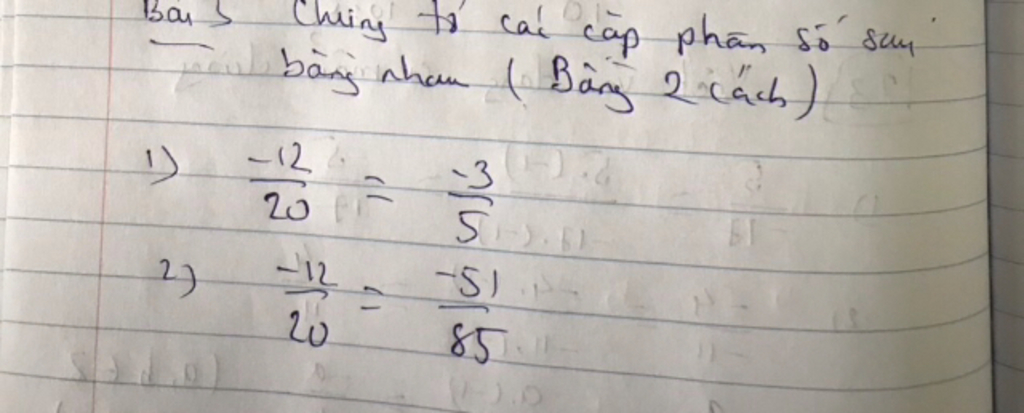 Bài 3 Chứng tỏ các cặp phân số sau
bằng nhau ( Bằng 2 cách )
1) -12/20 = -3/5
2) -12/20 = -51/85